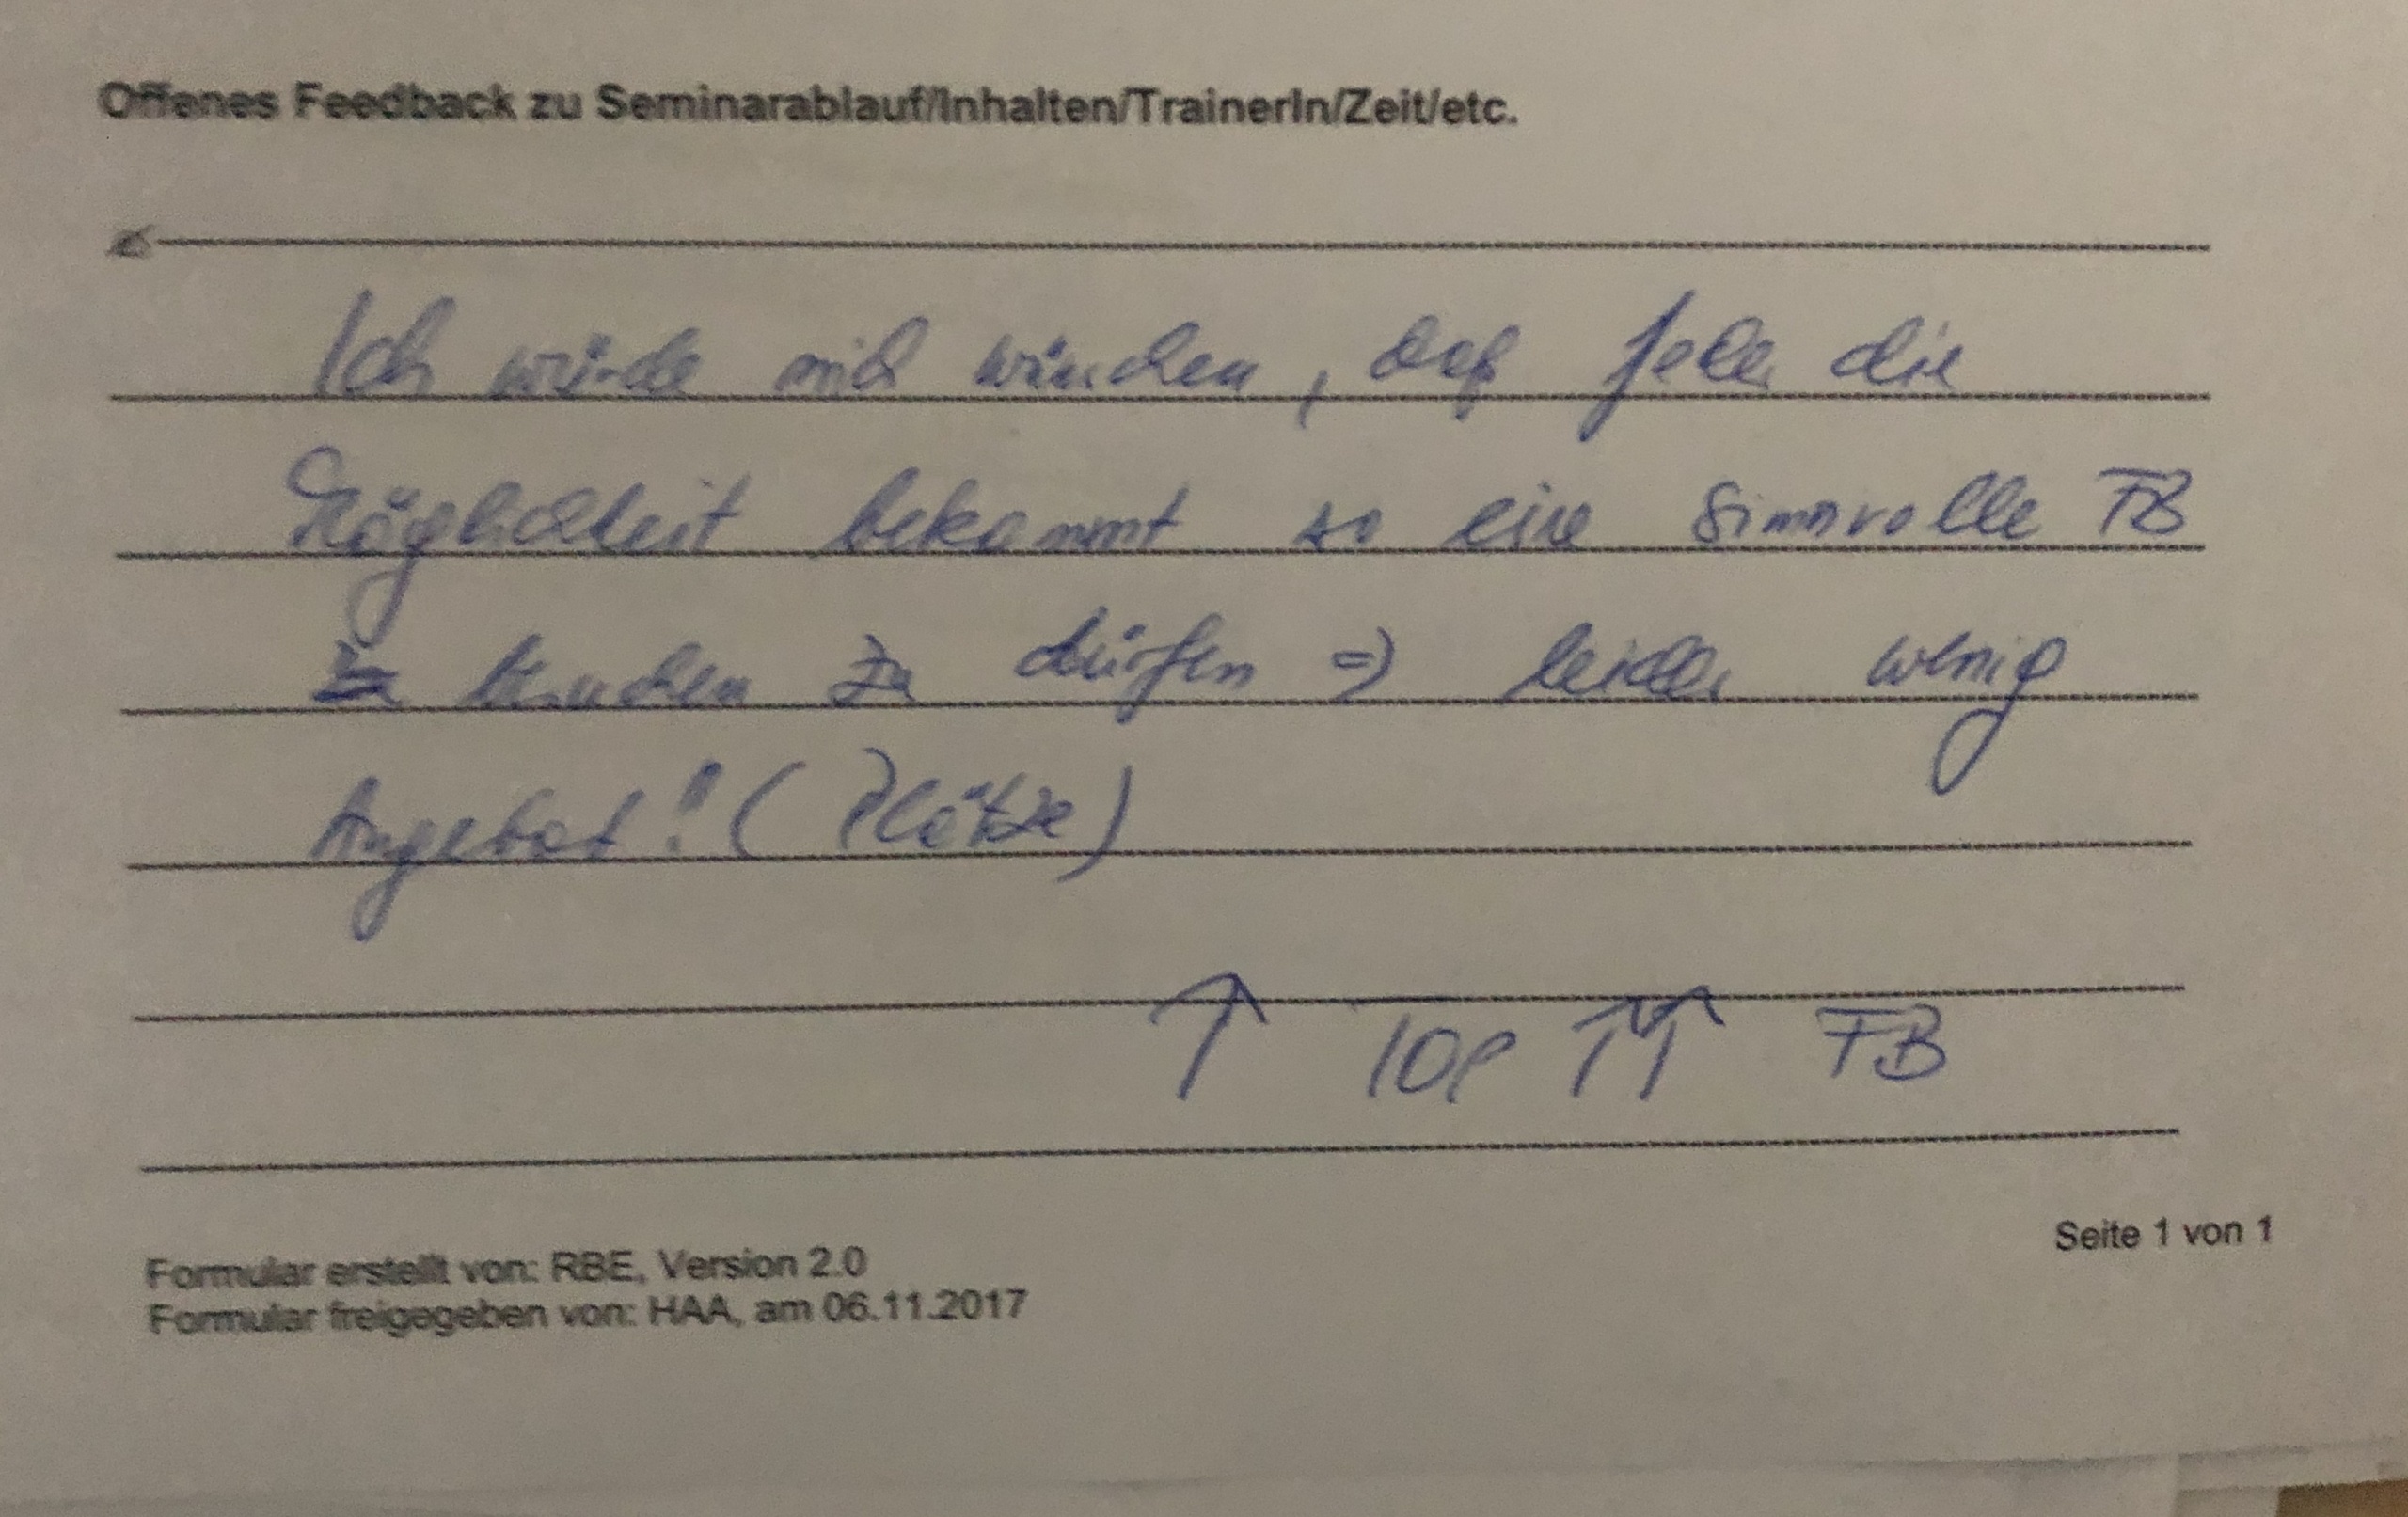 Offenes Feedback zu Seminarablauf/Inhalten/TrainerIn/Zeit/etc.
Ich würde mich wünchen, daß jeder die
Möglichkeit bekommt so eine Sinnvolle FB
zu dürfen => leider wenig
Angebot! (Plätze)
↑ TOP ↑↑ FB
Seite 1 von 1
Formular erstellt von: RBE, Version 2.0
Formular freigegeben von: HAA, am 06.11.2017